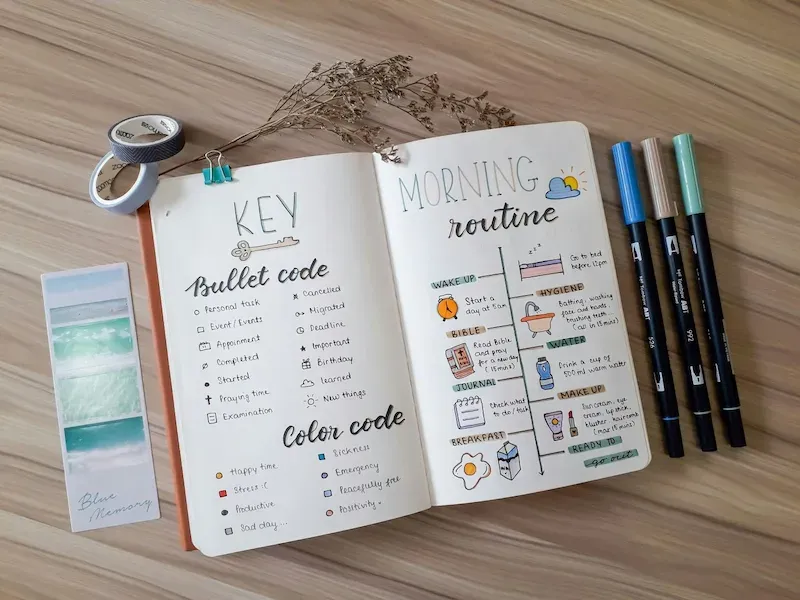 KEY
Bullet code
Personal task
Event/Events
Appoinment
Completed
Started
Praying time
Examination
Cancelled
Migrated
Deadline
Important
Birthday
learned
New things
Color code
Happy time
Stress :(
Productive
Sad day...
Sickness
Emergency
Peacefully free
Positivity
MORNING
routine
zzz
Go to bed
before 12pm
WAKE UP
Start a
day at 5am
HYGIENE
Bathing, washing
face and hands
brushing teeth...
(all in 15mins)
BIBLE
Read Bible
and pray
for a new day
(15mins)
WATER
Drink a cup of
500ml warm water
JOURNAL
Check what
to do/task
MAKE UP
Sun cream, eye
cream, lip stick,
blusher, hair comb
(max 15 mins)
BREAKFAST
READY TO
go out
Blue
Memory
Tombow ABT
526
Tombow ABT
992